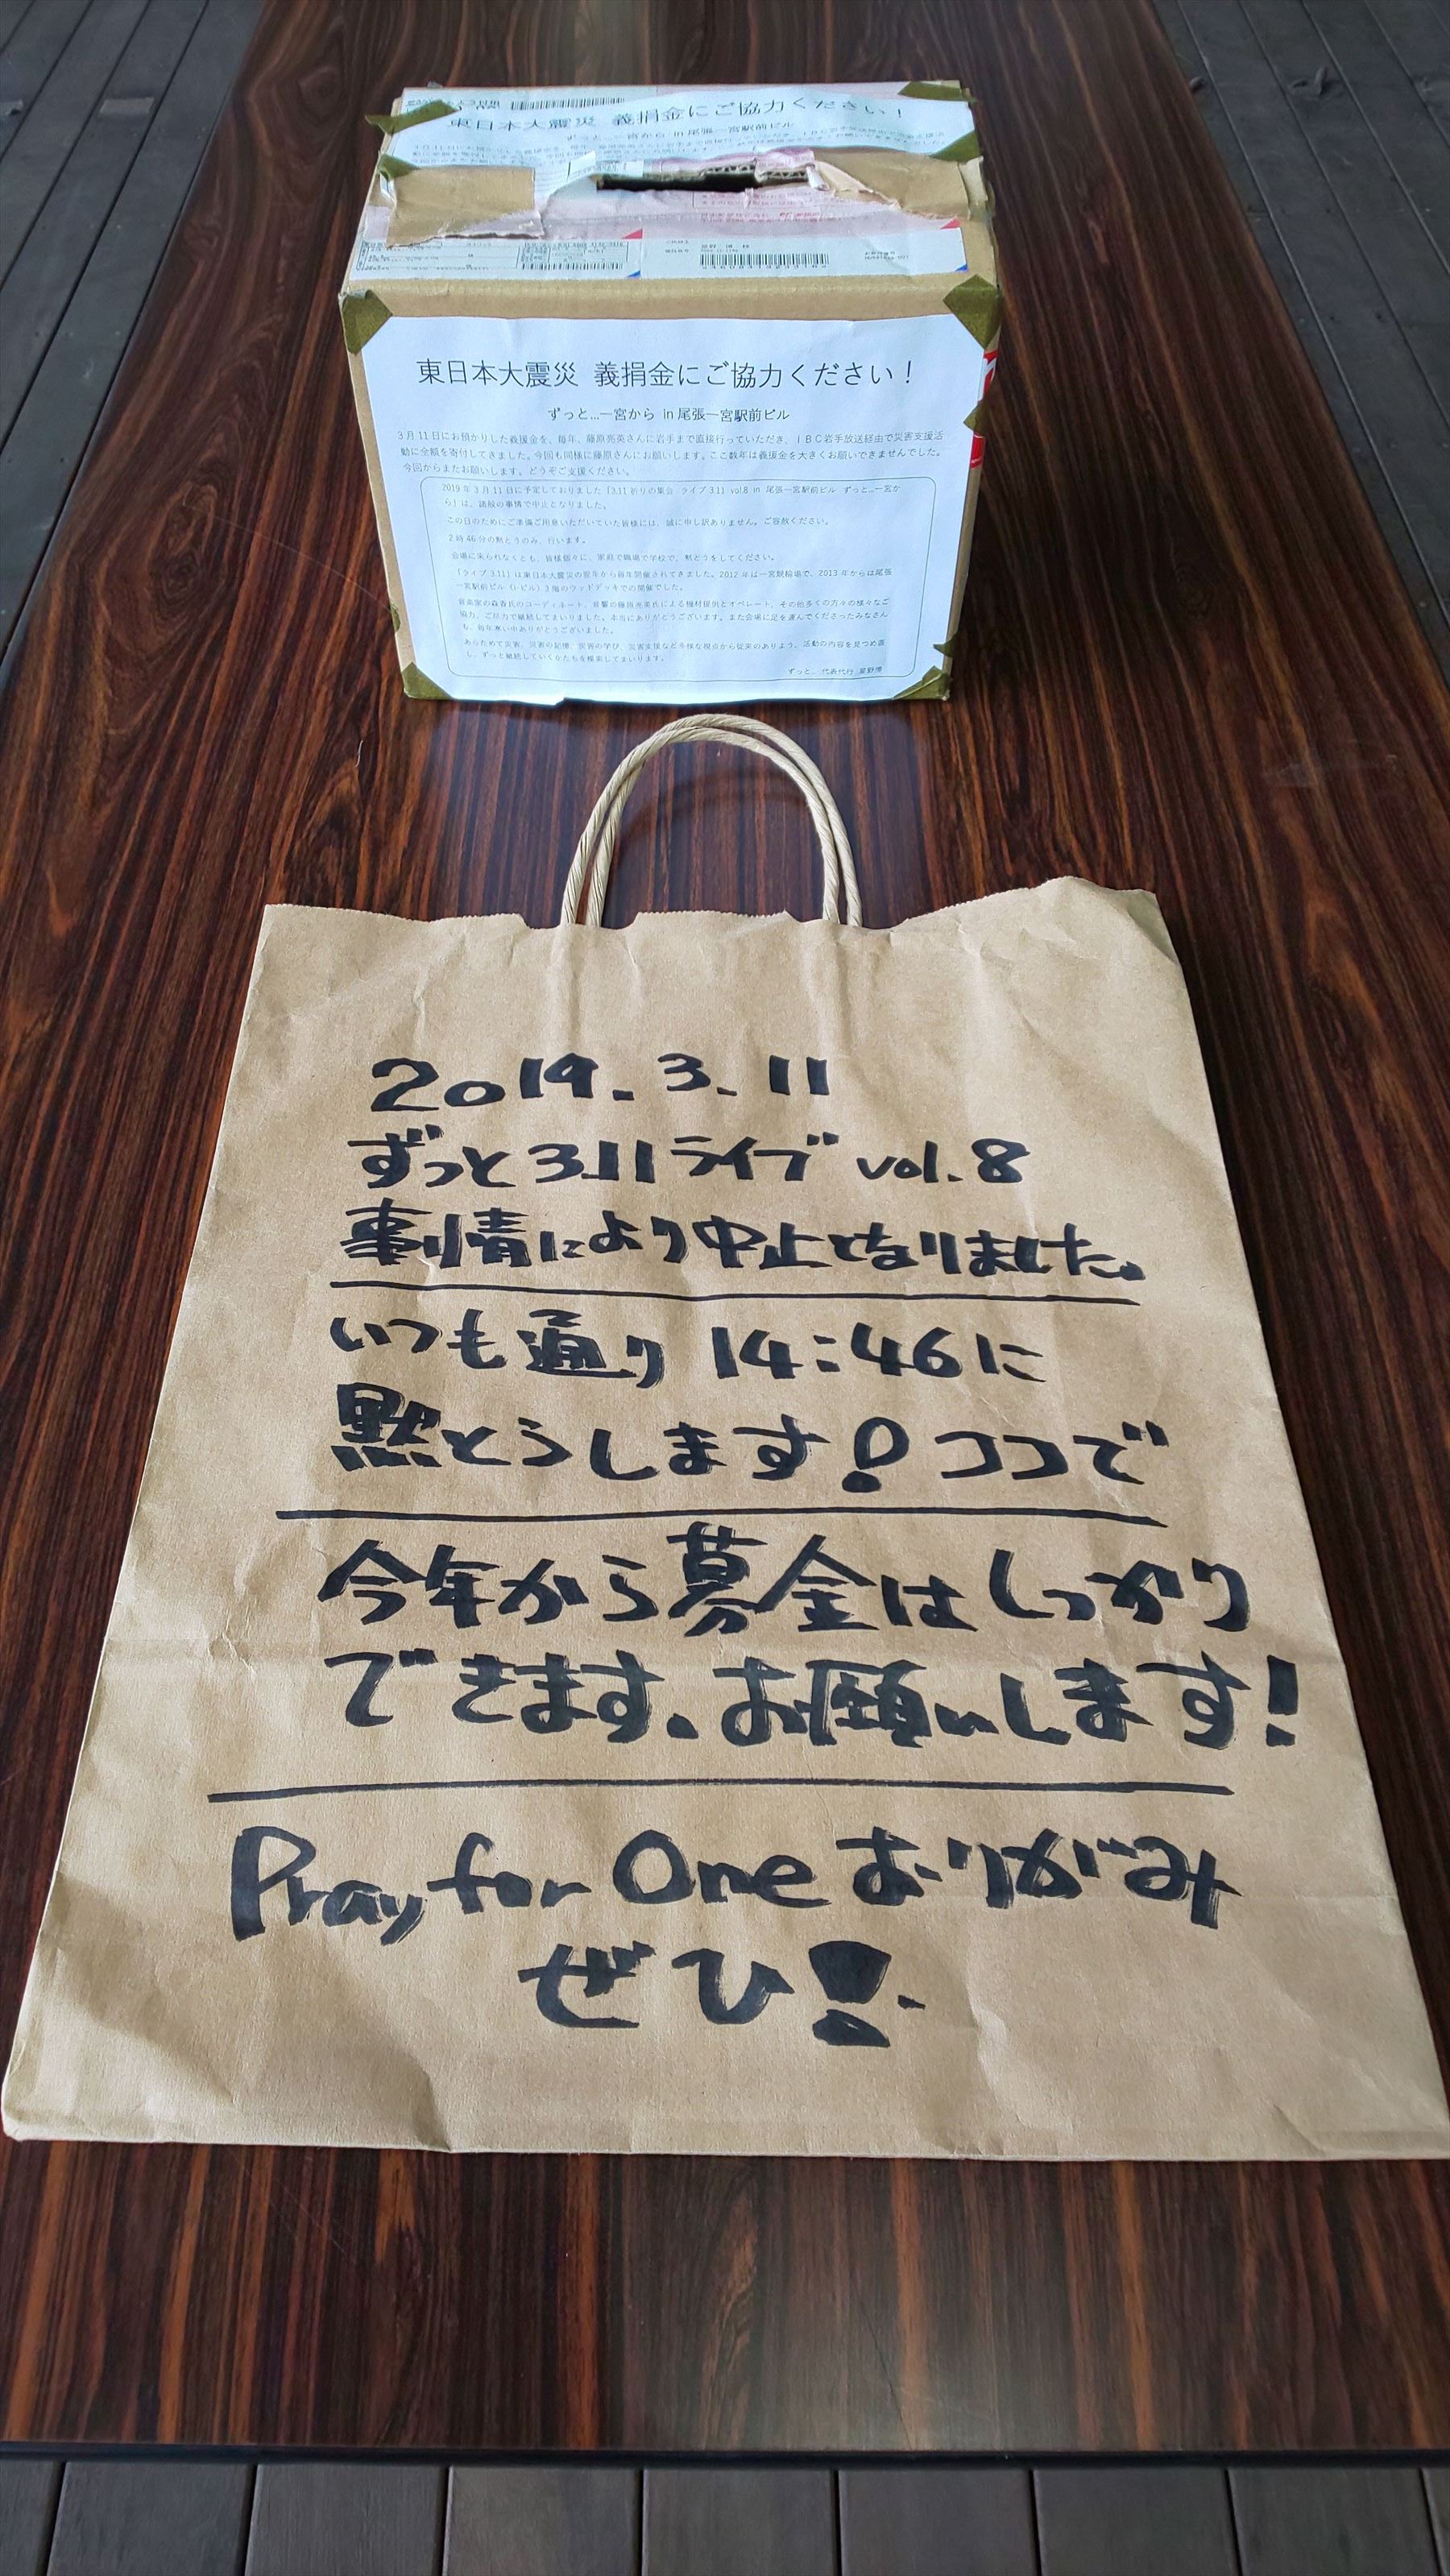 東日本大震災 義捐金にご協力ください！
ずっと...一宮から in 尾張一宮駅前ビル
東日本大震災 義捐金にご協力ください！
ずっと...一宮から in 尾張一宮駅前ビル
3月11日にお預かりした義援金を、毎年、藤原亮英さんに岩手まで直接行っていただき、IBC岩手放送経由で災害支援活
動に全額を寄付してきました。今回も同様に藤原さんにお願いします。ここ数年は義援金を大きくお願いできませんでした。
今回からまたお願いします。どうぞご支援ください。
2019年3月11日に予定しておりました「3.11祈りの集会 ライブ3.11 vol.8 in 尾張一宮駅前ビル ずっと...一宮か
ら」は、諸般の事情で中止となりました。
この日のためにご準備ご用意いただいていた皆様には、誠に申し訳ありません。ご容赦ください。
2時46分の黙とうのみ、行います。
会場に来られなくとも、皆様個々に、家庭で職場で学校で、黙とうをしてください。
「ライブ3.11」は東日本大震災の翌年から毎年開催されてきました。2012年は一宮競輪場で、2013年からは尾張
一宮駅前ビル（i-ビル）3階のウッドデッキでの開催でした。
音楽家の森香氏のコーディネート、音響の藤原亮英氏による機材提供とオペレート、その他多くの方々の様々なご
協力、ご尽力で継続してまいりました。本当にありがとうございます。また会場に足を運んでくださったみなさん
も、毎年寒い中ありがとうございました。
あらためて災害、災害の記憶、災害の学び、災害支援など多様な視点から従来のありよう、活動の内容を見つめ直
し、ずっと継続していくかたちを模索してまいります。
ずっと... 代表代行 星野博
2019.3.11
ずっと3.11ライブ vol.8
事情により中止となりました。
いつも通り 14:46に
黙とうします！ココで
今年から募金はしっかり
できます。お願いします！
Pray for One おりがみ
ぜひ！